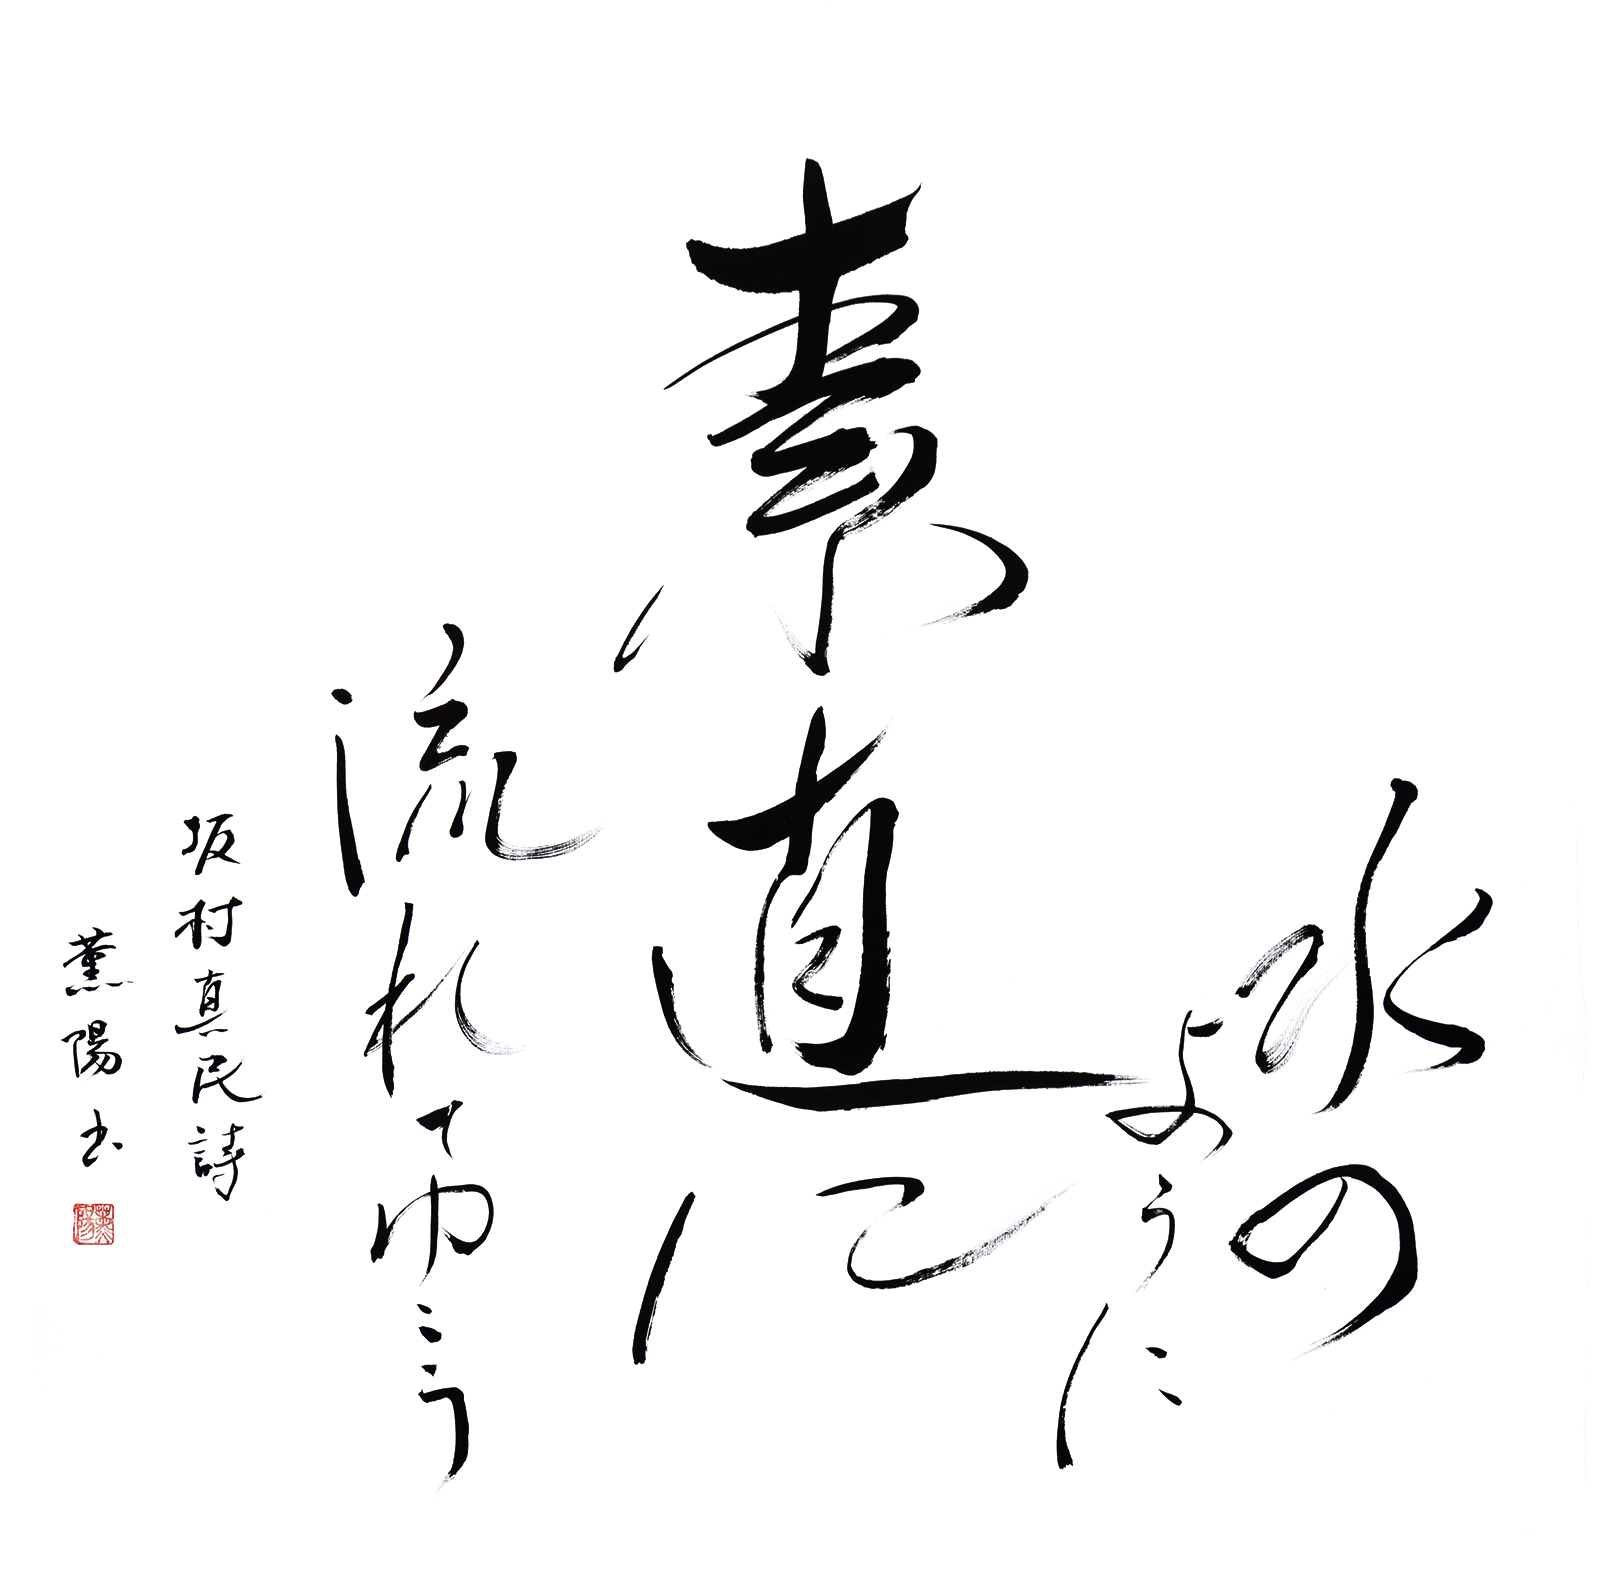 水の
ように
素直に
流れてゆこう
坂村真民詩
薫陽书
薫陽